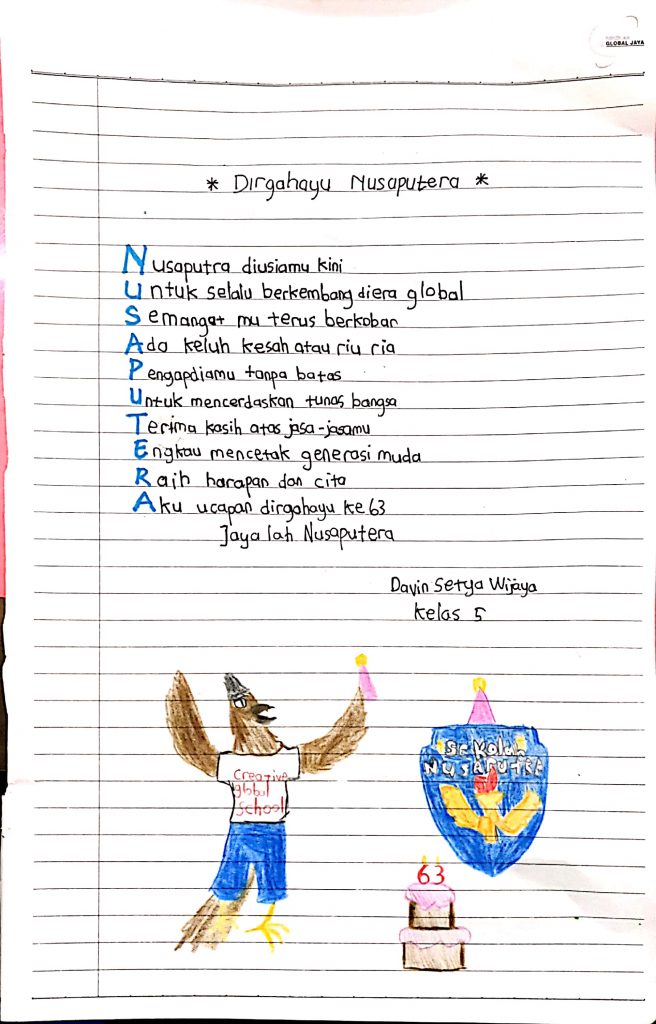 GLOBAL JAYA
* Dirgahayu Nusaputera *
Nusaputra diusiamu kini
Untuk selalu berkembang diera global
Semangat mu terus berkobar
Ada keluh kesah atau riu ria
Pengapdiamu tanpa batas
Untuk mencerdaskan tunas bangsa
Terima kasih atas jasa-jasamu
Engkau mencetak generasi muda
Raih harapan dan cita
Aku ucapan dirgahayu ke 63
Jaya lah Nusaputera
Davin Setya Wijaya
Kelas 5
Creative
global
School
Sekolah
NUSAPUTRE
63